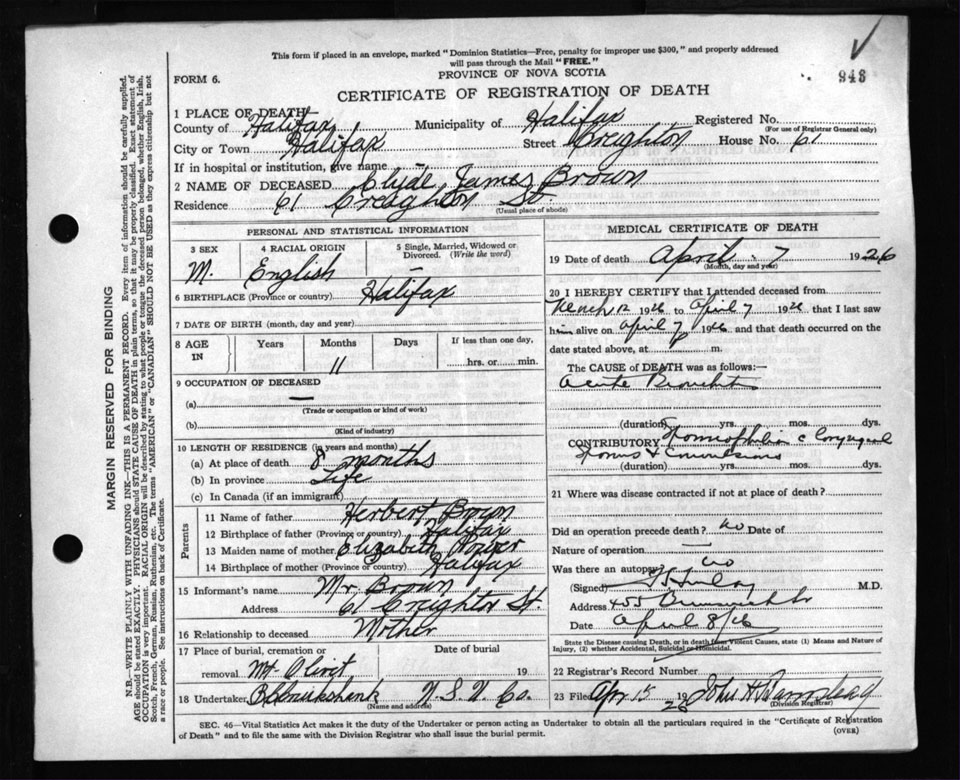 This form if placed in an envelope, marked "Dominion Statistics—Free, penalty for improper use $300," and properly addressed
will pass through the Mail "FREE."
943
FORM 6.
PROVINCE OF NOVA SCOTIA
CERTIFICATE OF REGISTRATION OF DEATH
1 PLACE OF DEATH
County of Halifax Municipality of Halifax Registered No.
(For use of Registrar General only)
City or Town Halifax Street Creighton House No. 61
If in hospital or institution, give name —
2 NAME OF DECEASED Clyde James Brown
Residence 61 Creighton St.
(Usual place of abode)
MARGIN RESERVED FOR BINDING
N.B.—WRITE PLAINLY WITH UNFADING INK—THIS IS A PERMANENT RECORD. Every item of information should be carefully supplied.
AGE should be stated EXACTLY. PHYSICIANS should STATE CAUSE OF DEATH in plain terms, so that it may be properly classified. Exact statement of
OCCUPATION is very important. RACIAL ORIGIN will be described by stating to what people or tongue the deceased person belonged, whether English, Irish,
Scotch, French, German, Russian, Ruthenian, etc. The terms "AMERICAN" or "CANADIAN" SHOULD NOT BE USED as they express citizenship but not
a race or people. See instructions on back of Certificate.
PERSONAL AND STATISTICAL INFORMATION
3 SEX 4 RACIAL ORIGIN 5 Single, Married, Widowed or
Divorced. (Write the word)
M. English —
6 BIRTHPLACE (Province or country) Halifax
7 DATE OF BIRTH (month, day and year)
8 AGE IN Years Months Days If less than one day,
11 hrs. or min.
9 OCCUPATION OF DECEASED
(a) —
(Trade or occupation or kind of work)
(b)
(Kind of industry)
10 LENGTH OF RESIDENCE (in years and months)
(a) At place of death 8 months
(b) In province Life
(c) In Canada (if an immigrant)
Parents
11 Name of father Herbert Brown
12 Birthplace of father (Province or country) Halifax
13 Maiden name of mother Elizabeth
14 Birthplace of mother (Province or country) Halifax
15 Informant's name Mr Brown
Address 61 Creighton St.
16 Relationship to deceased Mother
17 Place of burial, cremation or Date of burial
removal Mt Olivet 19
18 Undertaker Cruikshank N.S.U. Co.
(Name and address)
MEDICAL CERTIFICATE OF DEATH
19 Date of death April 7 1926
(Month, day and year)
20 I HEREBY CERTIFY that I attended deceased from
March 12 1926 to April 7 1926 that I last saw
him alive on April 7 1926 and that death occurred on
date stated above, at m.
The CAUSE of DEATH was as follows:—
Acute Bronchitis
(duration) yrs. mos. dys.
CONTRIBUTORY
& Convulsions
(duration) yrs. mos. dys.
21 Where was disease contracted if not at place of death?
Did an operation precede death? no Date of
Nature of operation —
Was there an autopsy? no
(Signed) M.D.
Address 455 Brunswick St
Date April 8/26
State the Disease causing Death, or in death from Violent Causes, state (1) Means and Nature of
Injury, (2) whether Accidental, Suicidal or Homicidal.
22 Registrar's Record Number
23 Filed Apr 15 1926 John A
(Division Registrar)
SEC. 46—Vital Statistics Act makes it the duty of the Undertaker or person acting as Undertaker to obtain all the particulars required in the "Certificate of Registration
of Death" and to file the same with the Division Registrar who shall issue the burial permit.
(OVER)